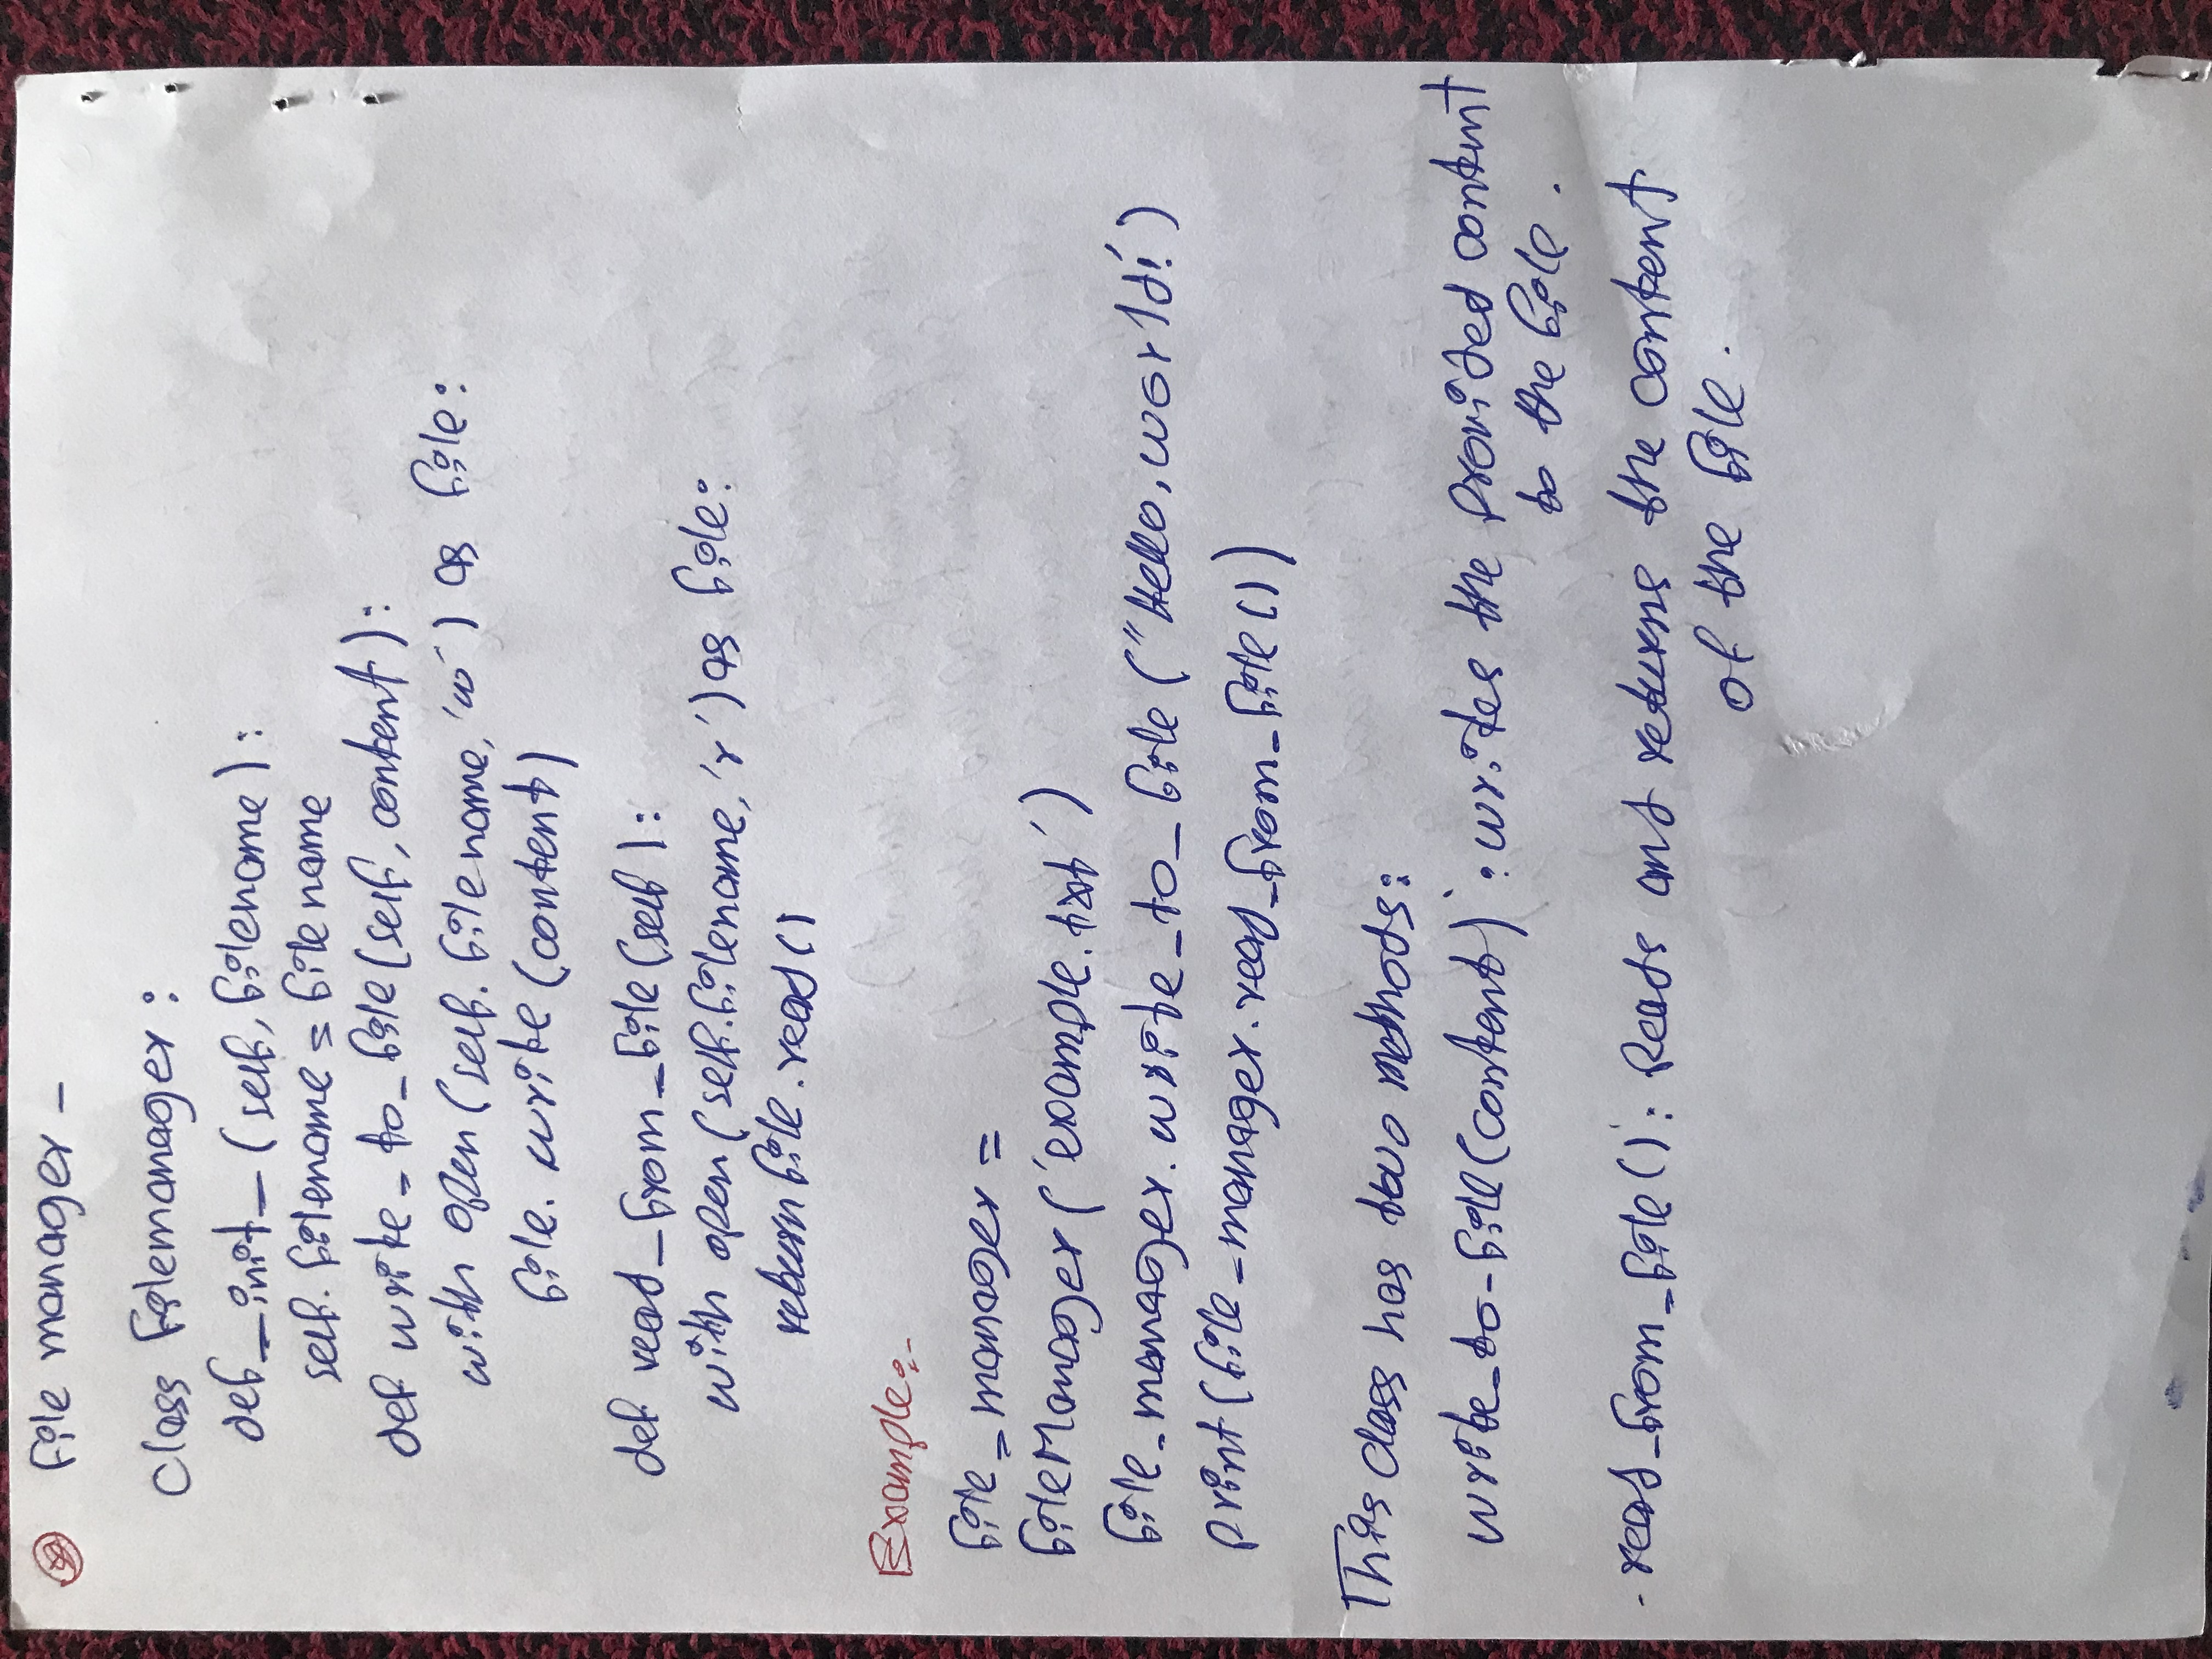 File manager -
class Filemanager:
def_init_(self, filename):
self.filename = filename
def write_to_file(self, content):
with open(self.filename, 'w') as file:
file.write(content)
def read_from_file(self):
with open(self.filename, 'r') as file:
return file.read()
Example:-
file_manager =
fileManager('example.txt')
file_manager.write_to_file("Hello, world!')
print(file_manager.read_from_file())
This class has two methods:
write_to-file(content): writes the provided content
to the file.
- read_from_file(): Reads and returns the content
of the file.